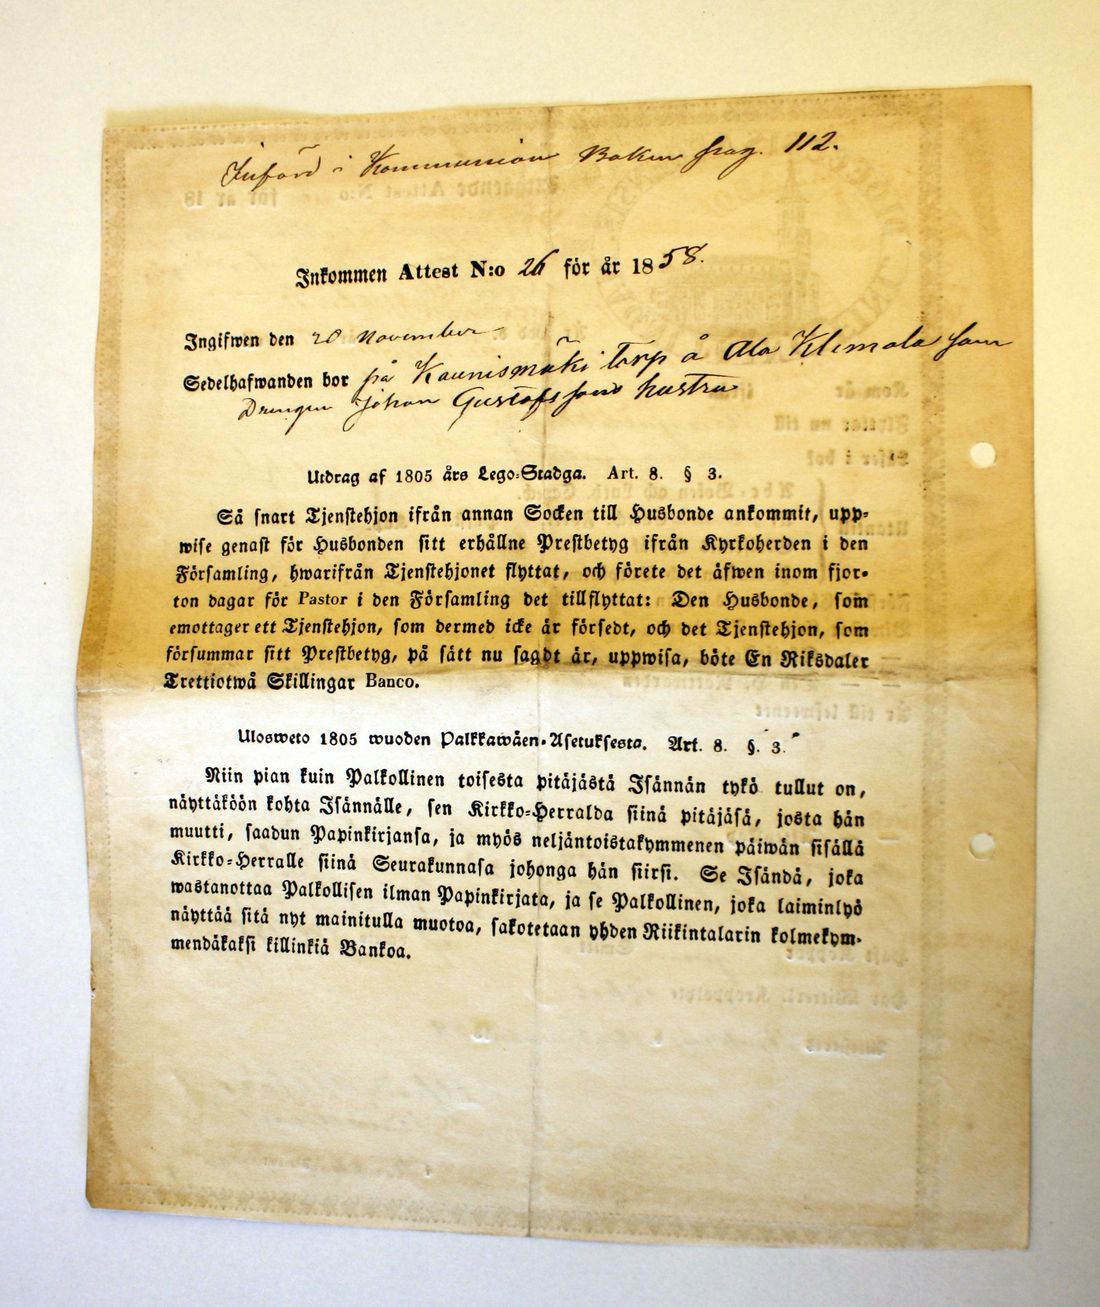 Införd i Kommunion Boken pag. 112.
Inkommen Attest N:o 26 för år 1858.
Ingifwen den 20 November
Sedelhafwanden bor på Kaunismäki Torp å Ala Klemola som
Drengen Johan Gustafssons hustru
Utdrag af 1805 års Lego-Stadga. Art. 8. § 3.
Så snart Tjenstehjon ifrån annan Socken till Husbonde ankommit, upp-
wise genast för Husbonden sitt erhållne Prestbetyg ifrån Kyrkoherden i den
Församling, hwarifrån Tjenstehjonet flyttat, och förete det äfwen inom fjor-
ton dagar för Pastor i den Församling det tillflyttat: Den Husbonde, som
emottager ett Tjenstehjon, som dermed icke är försedt, och det Tjenstehjon, som
försummar sitt Prestbetyg, på sätt nu sagdt är, uppwisa, böte En Riksdaler
Trettiotwå Skillingar Banco.
Ulosweto 1805 wuoden Palkkawäen-Asetuksesta. Art. 8. §. 3.
Niin pian kuin Palkollinen toisesta pitäjästä Isännän tykö tullut on,
näyttäköön kohta Isännälle, sen Kirkko-Herralda siinä pitäjäsä, josta hän
muutti, saadun Papinkirjansa, ja myös neljäntoistakymmenen päiwän sisällä
Kirkko-Herralle siinä Seurakunnasa johonga hän siirsi. Se Isändä, joka
wastanottaa Palkollisen ilman Papinkirjata, ja se Palkollinen, joka laiminlyö
näyttää sitä nyt mainitulla muotoa, sakotetaan yhden Riikintalarin kolmekym-
mendäkaksi killinkiä Bankoa.